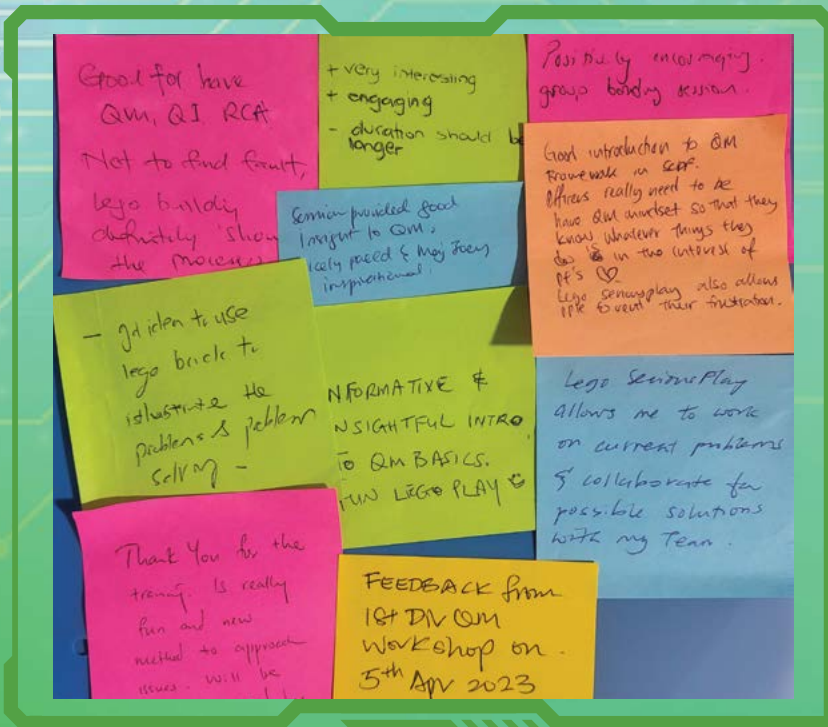 Good for have
QM, QI RCA
Not to find fault,
lego building
definitely 'show
the process
+ very interesting
+ engaging
- duration should be
longer
Positively encouraging.
group bonding session.
Session provided good
Insight to QM,
icely paced & Maj Joey
inspirational.
Good introduction to QM
Framework in SCDF.
Officers really need to be
have QM mindset so that they
know whatever things they
do is in the interest of
pt's ♡.
Lego seriousplay also allows
ppl to vent their frustration.
- gd idea to use
lego brick to
illustrate the
problems & problem
solving -
NFORMATIVE &
NSIGHTFUL INTRO
TO QM BASICS.
FUN LEGO PLAY
Lego SeriousPlay
allows me to work
on current problems
& collaborate for
possible solutions
with my Team.
Thank You for the
training. Is really
fun and new
method to approach
issues. Will be
FEEDBACK from
1st DIV QM
Workshop on.
5th Apr 2023